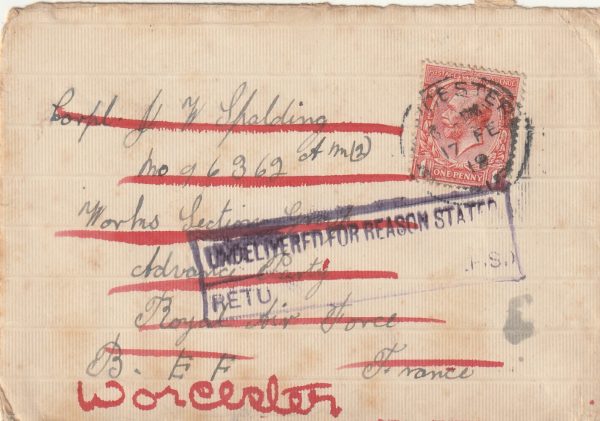 Corpl J W Spalding
No 96362 A m (2)
Works Section
Advance Party
Royal Air Force
B. E F France
Worcester
ONE PENNY
17 FE
19
UNDELIVERED FOR REASON STATED
RETU
P.S.)